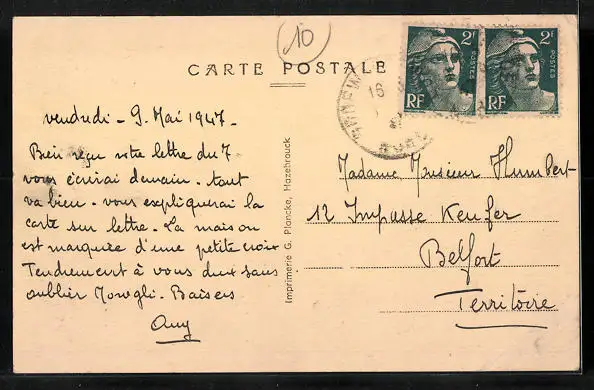 10
CARTE POSTALE
2F
POSTES
RF
2F
POSTES
RF
16
vendredi - 9. Mai 1947 -
Bien reçu votre lettre du 7
vous écrirai demain. tout
va bien. vous expliquerai la
carte sur lettre. La maison
est marquée d'une petite croix
Tendrement à vous deux sans
oublier Mowgli. Baisers
Imprimerie G. Plancke, Hazebrouck
Madame Monsieur Humbert
12 Impasse Keufer
Belfort
Territoire